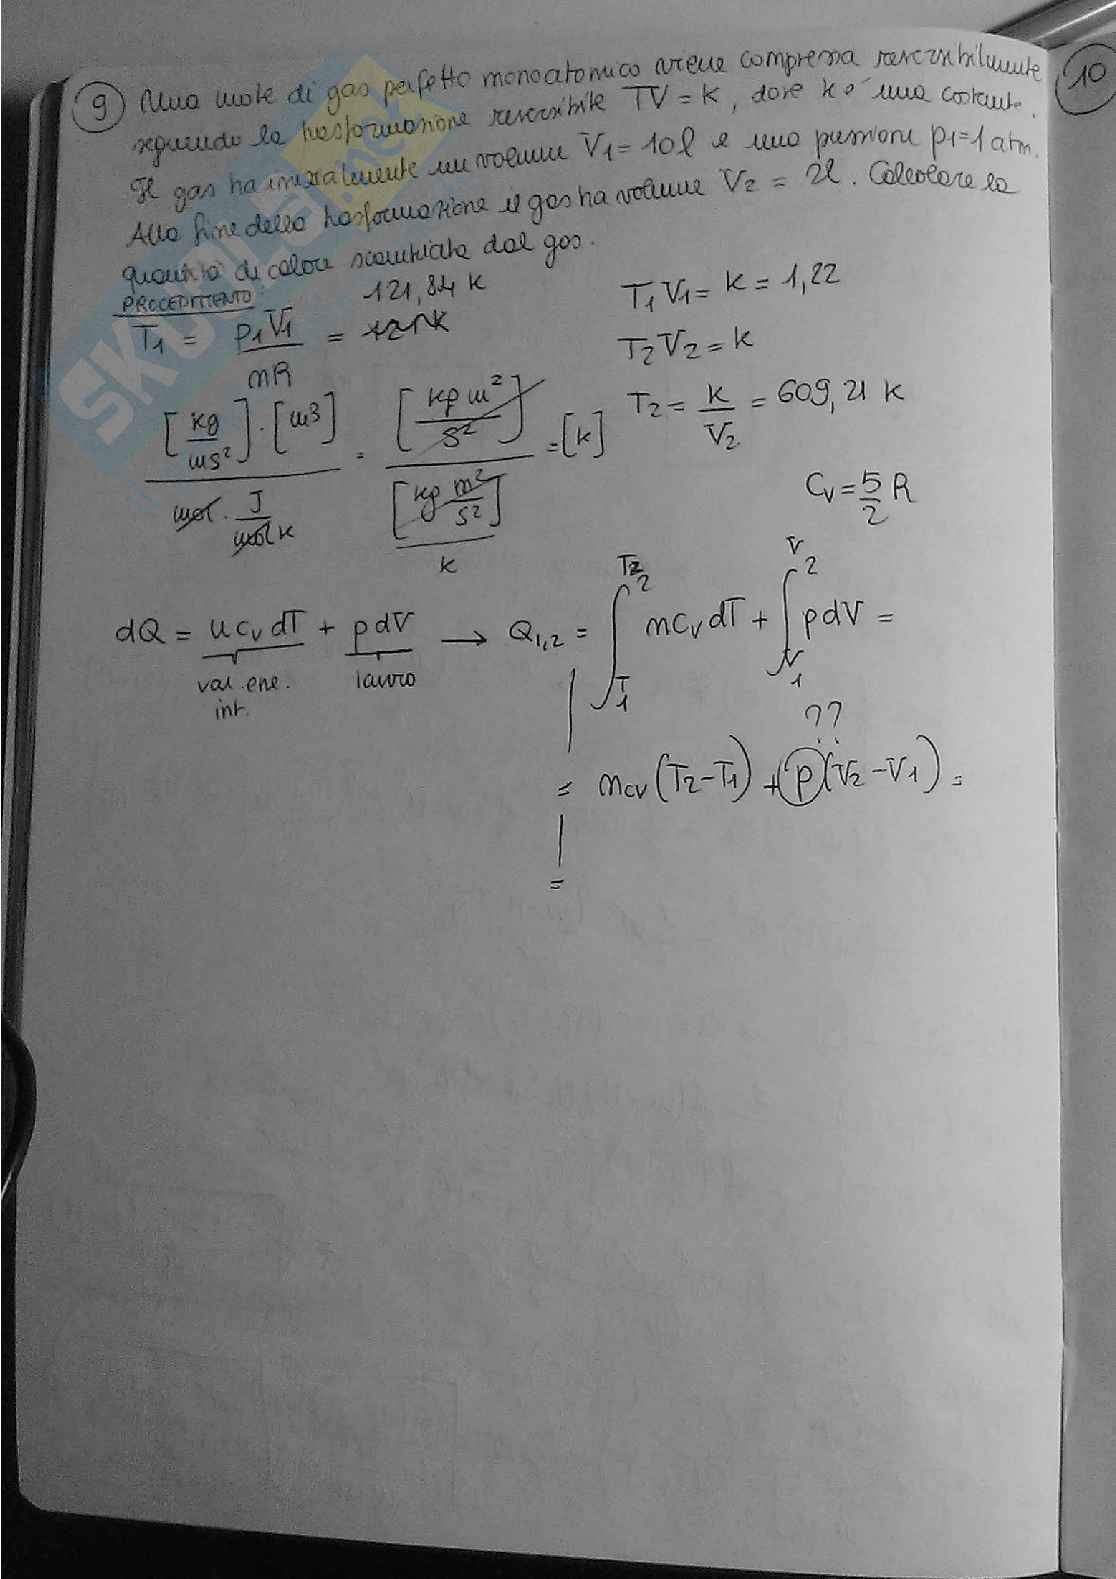 9 Una mole di gas perfetto monoatomico viene compressa reversibilmente
seguendo la trasformazione reversibile TV = K, dove k è una costante.
Il gas ha inizialmente un volume V1 = 10l e una pressione p1=1 atm.
Alla fine della trasformazione il gas ha volume V2 = 2l. Calcolare la
quantità di calore scambiata dal gas.
PROCEDIMENTO
121,84 K
T1 = p1V1 / nR =
T1V1 = K = 1,22
T2V2 = K
T2 = K / V2 = 609,21 K
[kg / ms²] · [m³] / mol · J / mol K = [kg m² / s²] / [kg m² / s²] / K = [K]
Cv = 5/2 R
dQ = n cv dT + p dV → Q1,2 = ∫ T1 T2 n cv dT + ∫ V1 V2 p dV =
var. ene. int.
lavoro
??
= n cv (T2 - T1) + p (V2 - V1) =
=
10
SKUOLA.net